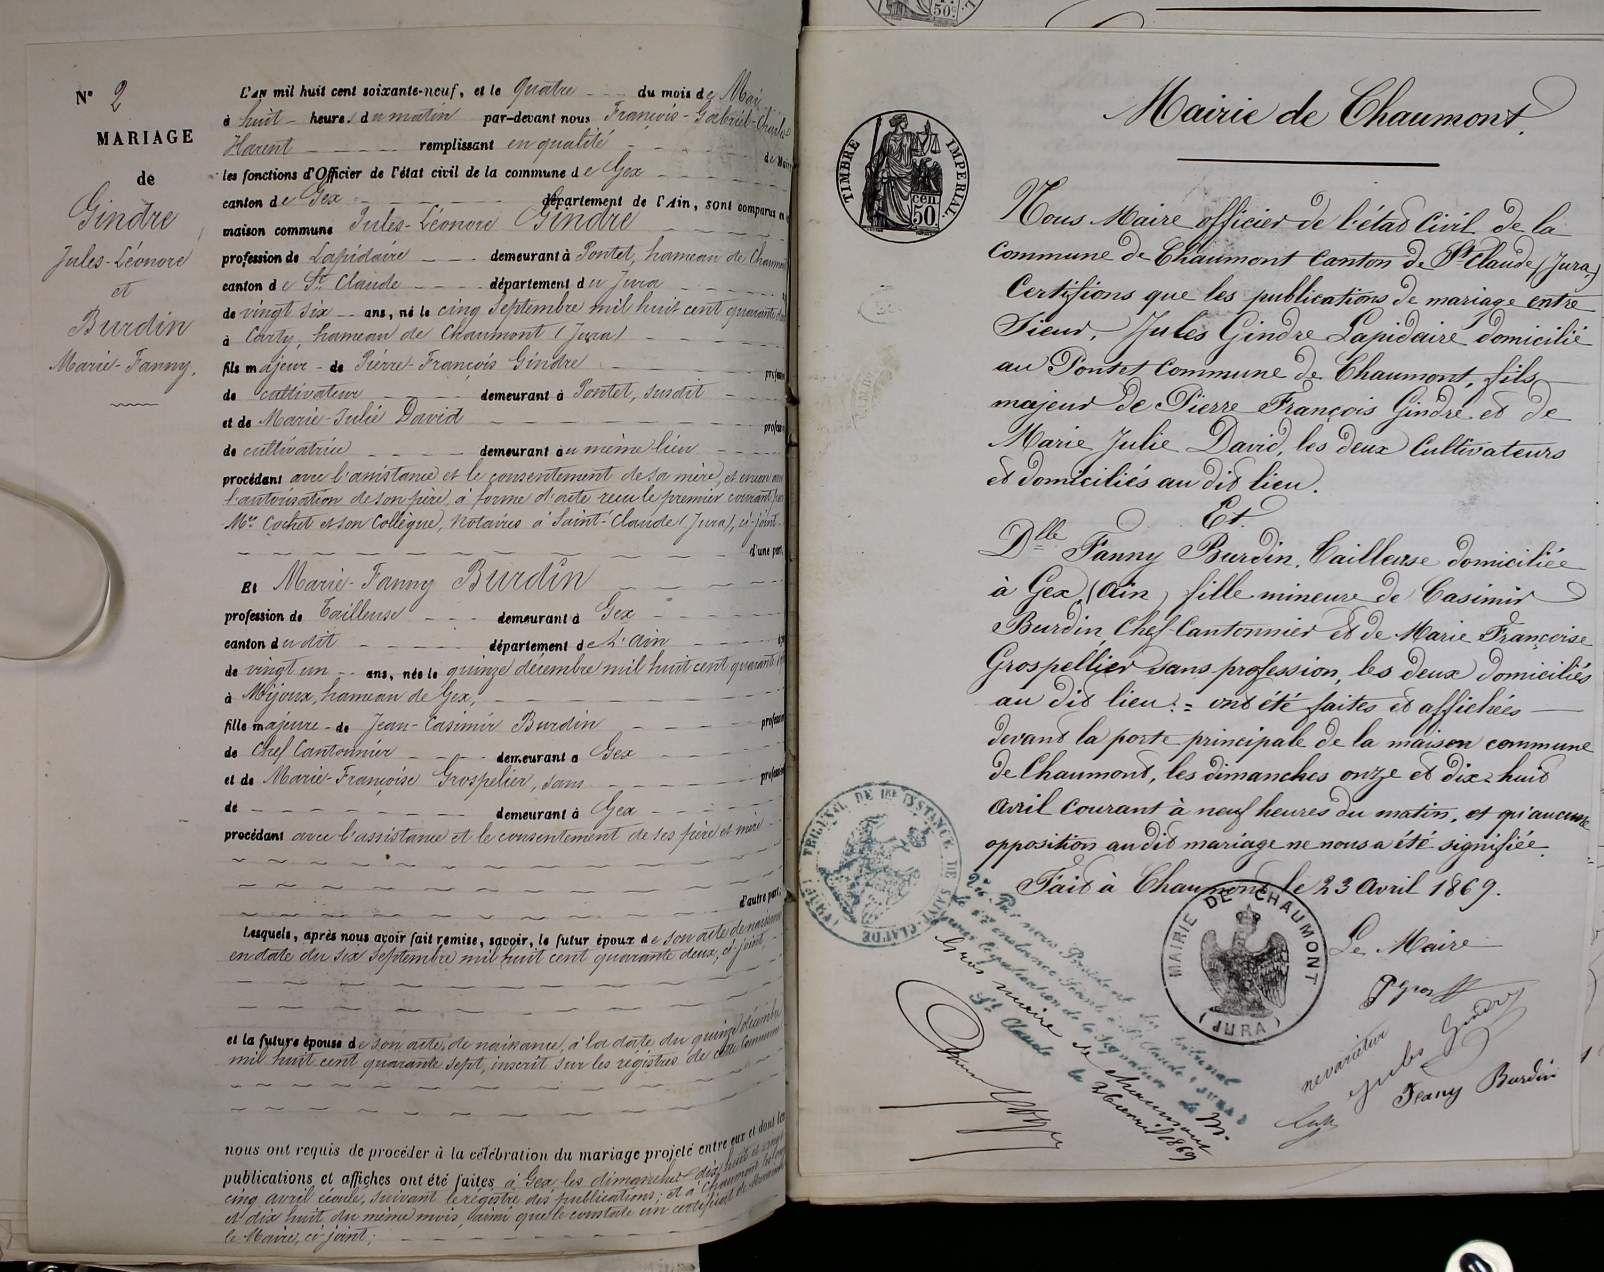 N° 2
MARIAGE
de
Gindre
Jules-Léonore
et
Burdin
Marie-Fanny.
L'AN mil huit cent soixante-neuf, et le quatre du mois de Mai
à huit heures du matin par-devant nous François-Gabriel-Charles
Harent remplissant en qualité de Maire
les fonctions d'Officier de l'état civil de la commune de Gex
canton de Gex département de l'Ain, sont comparus en
maison commune Jules-Léonore Gindre
profession de Lapidaire demeurant à Pontet, hameau de Chaumont
canton de St Claude département du Jura
de vingt six ans, né le cinq Septembre mil huit cent quarante
à Corty, hameau de Chaumont (Jura)
fils majeur de Pierre-François Gindre profession
de cultivateur demeurant à Pontet, susdit
et de Marie-Julie David profession
de cultivatrice demeurant au même lieu
procédant avec l'assistance et le consentement de sa mère, et encore avec
l'autorisation de son père, à forme d'acte reçu le premier courant par
Me Cochet et son Collègue, Notaires à Saint-Claude (Jura), ci-joint
d'une part,
Et Marie-Fanny Burdin
profession de Tailleuse demeurant à Gex
canton du dit département de l'Ain
de vingt un ans, née le quinze décembre mil huit cent quarante
à Mijoux, hameau de Gex,
fille majeure de Jean-Casimir Burdin profession
de Chef Cantonnier demeurant à Gex
et de Marie-Françoise Grospelier, sans profession
de demeurant à Gex
procédant avec l'assistance et le consentement de ses père et mère
d'autre part.
Lesquels, après nous avoir fait remise, savoir, le futur époux de son acte de naissance
en date du six Septembre mil huit cent quarante deux, ci-joint,
et la future épouse de son acte de naissance, à la date du quinze décembre
mil huit cent quarante sept, inscrit sur les registres de cette Commune
nous ont requis de procéder à la célébration du mariage projeté entre eux et dont les
publications et affiches ont été faites à Gex les dimanches dix huit et vingt
cinq avril écoulé, suivant le registre des publications; et à Chaumont les onze
et dix huit du même mois, ainsi que le constate un certificat de Monsieur
le Maire, ci-joint;
Mairie de Chaumont.
TIMBRE IMPERIAL
50 cen
Nous Maire officier de l'état Civil de la
Commune de Chaumont Canton de St Claude (Jura)
Certifions que les publications de mariage entre
Sieur, Jules Gindre Lapidaire domicilié
au Pontet Commune de Chaumont, fils
majeur de Pierre François Gindre et de
Marie Julie David, les deux Cultivateurs
et domiciliés au dit lieu.
Et
Dlle Fanny Burdin, Tailleuse domiciliée
à Gex, (Ain) fille mineure de Casimir
Burdin Chef-Cantonnier et de Marie Françoise
Grospellier sans profession, les deux domiciliés
au dit lieu = ont été faites et affichées
devant la porte principale de la maison commune
de Chaumont, les dimanches onze et dix-huit
avril courant à neuf heures du matin, et qu'aucune
opposition au dit mariage ne nous a été signifiée.
Fait à Chaumont, le 23 Avril 1869.
Le Maire
P Gros
MAIRIE DE CHAUMONT
(JURA)
TRIBUNAL DE 1RE INSTANCE DE SAINT-CLAUDE (JURA)
Vu Par nous Président du tribunal
de 1re instance séant à St Claude (JURA)
pour légalisation de la signature de M.
Gros maire de Chaumont
St Claude le 26 avril 1869
ne varietur
Jules Gindre
Fanny Burdin